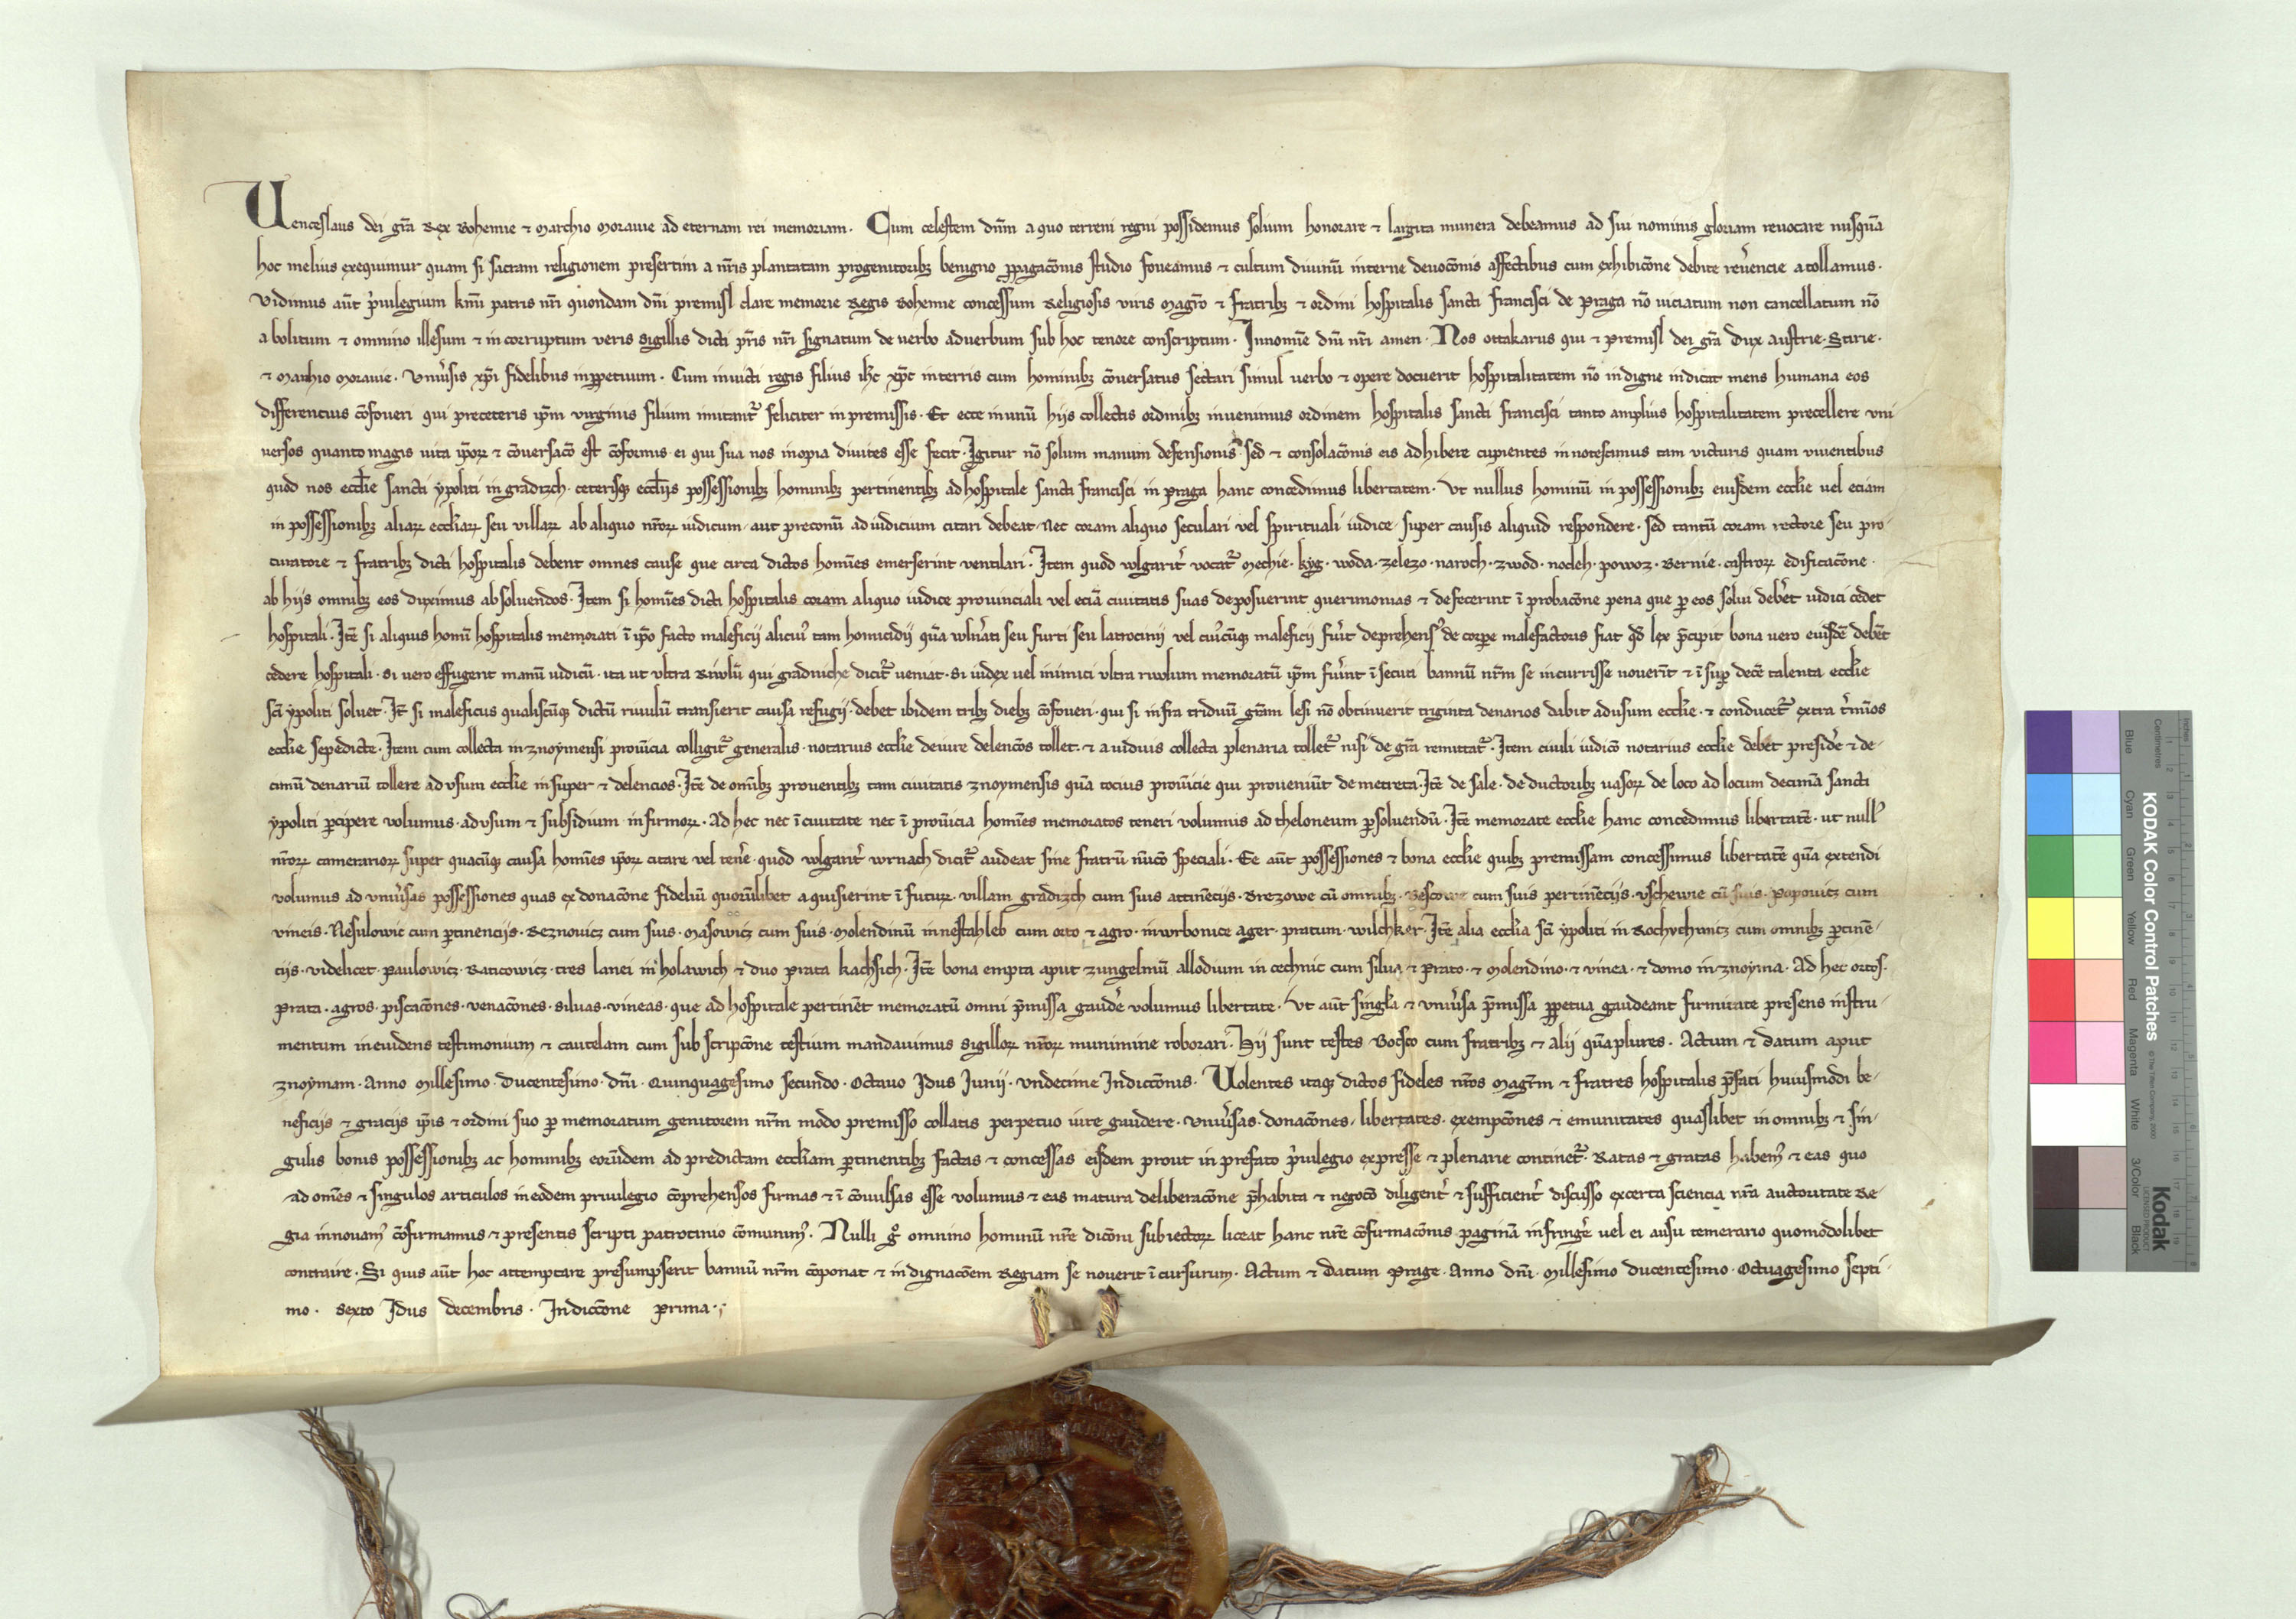 Uenceslaus dei gr̄a Rex Bohemie ⁊ Marchio Morauie ad eternam rei memoriam. Cum celestem dn̄m a quo terreni regni possidemus solium honorare ⁊ largita munera debeamus ad sui nominis gloriam reuocare nusquā
hoc melius exequimur quam si sacram religionem presertim a nr̄is plantatam progenitoribꝫ benigno ꝓpagacōnis studio foueamus ⁊ cultum diuinū interne deuocōnis affectibus cum exhibicōne debite reu̓encie a tollamus.
Vidimus aūt p̓uilegium kmī patris nr̄i quondam dn̄i premisl clare memorie Regis Bohemie concessum Religiosis viris Magr̄o ⁊ fratribꝫ ⁊ ordini hospitalis sancti francisci de praga nō uiciatum non cancellatum nō
a bolitum ⁊ omnino illesum ⁊ in corruptum veris sigillis dicti pr̄is nr̄i signatum de uerbo aduerbum sub hoc tenore conscriptum. Innomīe dn̄i nr̄i amen. Nos ottakarus qui ⁊ premisl dei gr̄a Dux austrie. Stirie.
⁊ Marchio Morauie. Vniu̓sis xp̄i fidelibus inꝑpetuum. Cum inuicti regis filius ih̄c xp̄c interris cum hominibꝫ cōuersatus sectari simul uerbo ⁊ opere docuerit hospitalitatem nō indigne indicat mens humana eos
differencius cōfoueri qui preceteris ip̄m virginis filium imitant᷑ feliciter in premissis. Et ecce inunū hijs collectis ordinibꝫ inuenimus ordinem hospitalis sancti francisci tanto amplius hospitalitatem precellere vni
uersos quanto magis uita ip̄oꝝ ⁊ cōuersacō est cōformis. ei qui sua nos inopia diuites esse fecit. Igitur nō solum manum defensionis. sed ⁊ consolacōnis eis adhibere cupientes innotescimus tam victuris quam viuentibus
quod nos eccl̄ie sancti ypoliti in gradizch. ceterisqꝫ eccl̄ijs possessionibꝫ hominibꝫ pertinentibꝫ ad hospitale sancti francisci in praga hanc concedimus libertatem. Vt nullus hominū in possessionibꝫ eiusdem eccl̄ie uel eciam
in possessionibꝫ aliaꝝ eccl̄iaꝝ seu villaꝝ ab aliquo nr̄oꝝ iudicum. aut preconū ad iudicium citari debeat. Nec coram aliquo seculari vel spirituali iudice. super causis aliquid respondere. sed tantū coram rectore seu pro-
curatore ⁊ fratribꝫ dicti hospitalis debent omnes cause que circa dictos homīes emerserint ventilari. Item quod wlgarit̓ vocat᷑ Mechie. kyg. woda. zelezo. naroch. zwod. nocleh. powoz. Bernie. castroꝝ edificacōne.
ab hijs omnibꝫ eos duximus ab soluendos. Item si homīes dicti hospitalis coram aliquo iudice prouinciali vel eciā ciuitatis suas deposuerint querimonias ⁊ defecerint ī probacōne pena que ꝑ eos solui deb̓et iudici cedet
hospitali. Itē si aliquis homū hospitalis memorati ī ip̄o facto maleficij alicuiꝰ tam homicidij quā wln̓ati seu furti seu latrocinij vel cuiꝰcūqꝫ maleficij fu̓it deprehensꝰ de corꝑe malefactoris fiat qd̄ lex p̄cipit bona uero eiusdē debēt
cedere hospitali. Si vero effugerit manū iudicū. ita ut vltra Riwlū qui gradniche dicit᷑ ueniat. Si iudex uel inimici vltra riwlum memoratū ip̄m fu̓int ī secuti bannū nr̄m se incurrisse nouerīt ⁊ ī suꝑ decē talenta eccl̄ie
scī ypoliti soluet. It̄ si maleficus qualiscūqꝫ dictū riuulū transierit causa refugij. debet ibidem tribꝫ diebꝫ cōfoueri. qui si infra triduū gr̄am lesi nō obtinuerit triginta denarios dabit adusum eccl̄ie. ⁊ conducet᷑ extra t̓mīos
eccl̄ie sepedicte. Item cum collecta in znoymensi prouīcia colligit᷑ generalis. notarius eccl̄ie deiure delencōs tollet. ⁊ a uiduis collecta plenaria tollet᷑ nisi de gr̄a remittat᷑. Item ciuili iudicō notarius eccl̄ie debet presid̓e ⁊ de-
cimū denariū tollere ad vsum eccl̄ie in super ⁊ delencios. Itē de omībꝫ prouentibꝫ tam ciuitatis znoymensis quā tocius prouīcie qui proueniūt de metreta. Itē de sale. de ductoribꝫ uasoꝝ de loco ad locum decimā sancti
ypoliti ꝑcipere volumus. advsum ⁊ subsidium infirmoꝝ. Ad hec nec ī ciuitate nec ī prouīcia homīes memoratos teneri volumus ad theloneum ꝑsoluendū. Itē memorate eccl̄ie hanc concedimus libertatē. ut nullꝰ
nr̄oꝝ camerarioꝝ super quacūqꝫ causa homīes ip̄oꝝ citare vel ten̓e. quod wlgarit̓ wrnach dicit᷑ audeat sine fratrū nūcō speciali. Ee aūt possessiones ⁊ bona eccl̄ie quibꝫ premissam concessimus libertatē quā extendi
volumus ad vniu̓sas possessiones quas ex donacōne fideliū quorūlibet a quisierint ī futuꝝ. villam gradizch cum suis attinēcijs. Brezowe cū omnibꝫ. cum suis pertinēcijs. vschewie cū suis. Popouicz cum
vineis. Nesulowic cum ꝑtinencijs. Beznouicz cum suis. Masowicz cum suis. Molendinū innestahleb cum orto ⁊ agro. inwrbonice ager. pratum. wilchker. Itē alia eccl̄ia scī ypoliti in cum omnibꝫ ꝑtinē-
cijs. videlicet. Paulowicz. Baticowicz. tres lanei in holawich ⁊ duo prata kachsich. Itē bona empta aput zungelmū allodium in cechnic cum silua ⁊ prato. ⁊ molendino. ⁊ vinea. ⁊ domo in znoyma. Ad hec ortos.
Prata. agros. piscacōnes. venacōnes. siluas. vineas. que ad hospitale pertinēt memoratū omni p̄missa gaud̓e volumus libertate. Vt aūt singl̄a ⁊ vniu̓sa p̄missa ꝑpetua gaudeant firmitate presens instru-
mentum ineuidens testimonium ⁊ cautelam cum sub scripcōne testium mandauimus sigilloꝝ nr̄oꝝ munimine roborari. Hij sunt testes Bocsco cum fratribꝫ ⁊ alij quāplures. Actum ⁊ datum aput
znoymam. Anno Millesimo. Ducentesimo. dn̄i. Quinquagesimo secundo. Octauo Idus Junij. vndecime Indiccōnis. Uolentes itaqꝫ dictos fideles nr̄os Magr̄m ⁊ fratres hospitalis p̄fati huiusmodi be-
neficijs ⁊ gracijs ip̄is ⁊ ordini suo ꝑ memoratum genitorem nr̄m modo premisso collatis perpetuo iure gaudere. vniu̓sas. donacōnes. libertates. exempcōnes ⁊ emunitates quaslibet in omnibꝫ ⁊ sin-
gulis bonis possessionibꝫ ac hominibꝫ eorūdem ad predictam eccl̄iam ꝑtinentibꝫ factas ⁊ concessas eisdem prout in prefato p̓uilegio expresse ⁊ plenarie continet᷑. Ratas ⁊ gratas habemꝰ ⁊ eas quo
ad omēs ⁊ singulos articulos ineodem priuilegio cōprehensos firmas ⁊ ī cōuulsas esse volumus ⁊ eas matura deliberacōne p̄habita ⁊ negocō diligent̓ ⁊ sufficient̓ discusso excerta sciencia nr̄a auctoritate Re-
gia innouamꝰ cōfirmamus ⁊ presentis scripti patrocinio cōmunimꝰ. Nulli gͦ omnino hominū nr̄e dicōni subiectoꝝ liceat hanc nr̄e cōfirmacōnis paginā infring̓e vel ei ausu temerario quomodolibet
contraire. Si quis aūt hoc attemptare presumpserit bannū nr̄m cōponat ⁊ indignacōem Regiam se nouerit ī cursurum. Actum ⁊ Datum Prage. Anno dn̄i. Millesimo ducentesimo. Octuagesimo septi-
mo. Sexto Idus decembris. Indiccōne prima.
KODAK Color Control Patches
© The Tiffen Company, 2000
Kodak
LICENSED PRODUCT
Blue Cyan Green Yellow Red Magenta White 3/Color Black
Centimetres
Inches